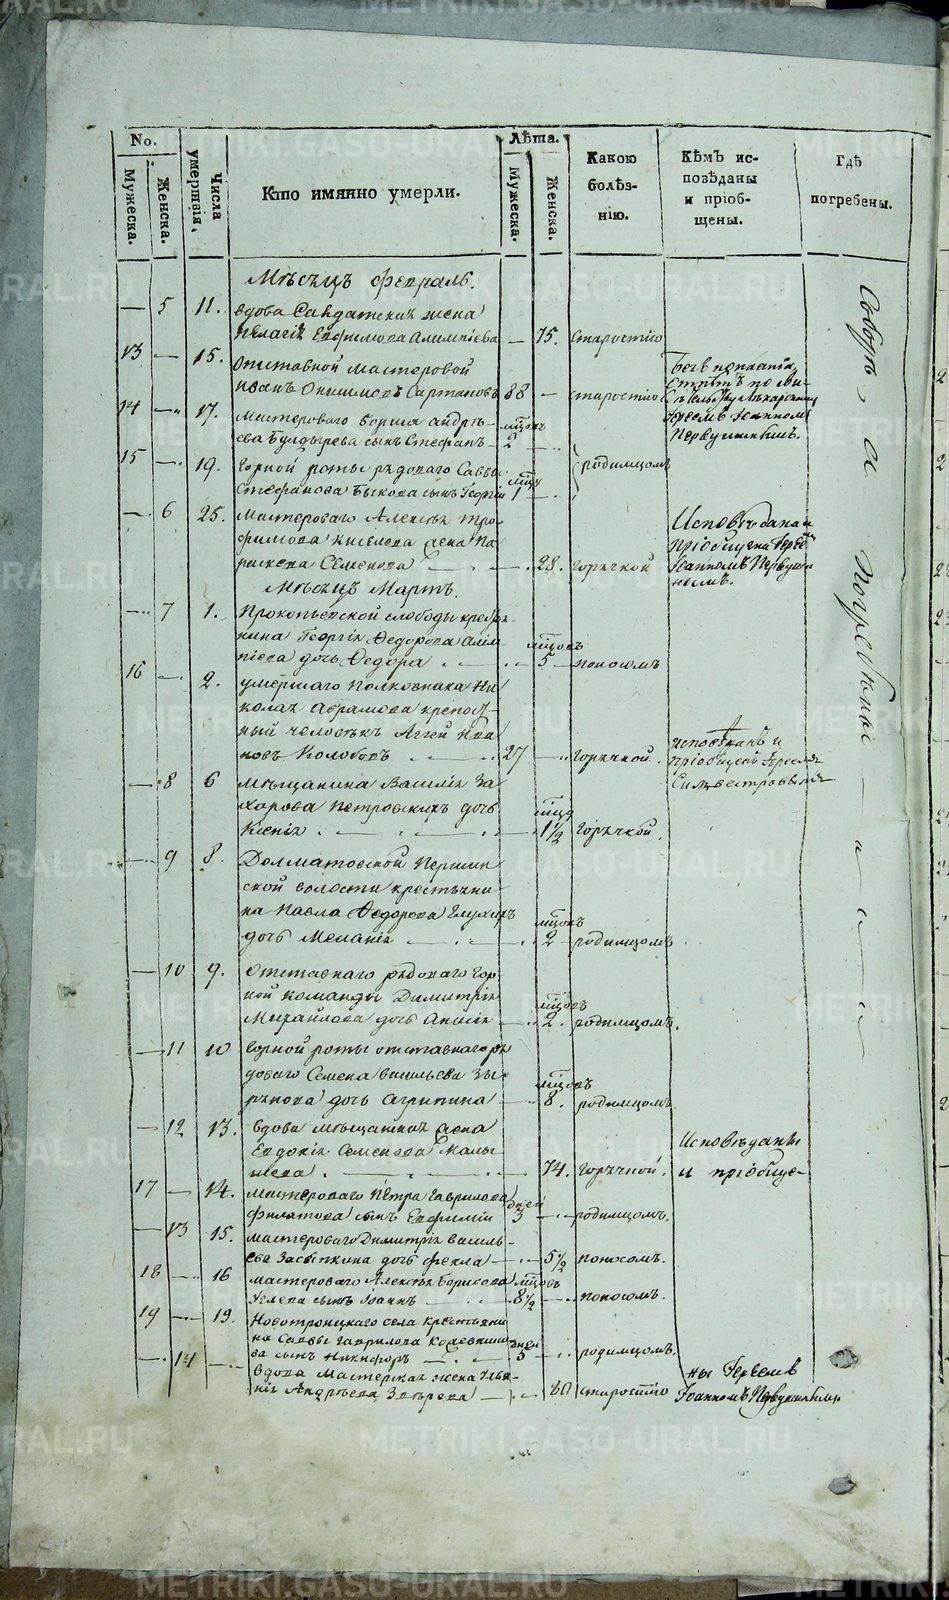 No.
Мужеска.
Женска.
Числа умертвія.
Кто имянно умерли.
Лѣта.
Мужеска.
Женска.
Какою болѣз-
нію.
Кѣмъ ис-
повѣданы
и пріоб-
щены.
Гдѣ
погребены.
Мѣсяцъ февраль.
— 5 11. вдова Салдатская жена
Пелагія Евфимова Алимпіева — 75. старостію
13 — 15. Отставной мастеровой
Иванъ Онисимовъ Сартаковъ 88 — старостію
14 — 17. Мастероваго Бориса Андрѣ- мѣсяцъ
ева Булдырева сынъ Стефанъ 2 —
15 — 19. Горной роты рядоваго Саввы
Стефанова Быкова сынъ Георгій 1 — родимцомъ
— 6 25. Мастероваго Алексѣя Тро-
фимова Киселева жена Па-
раскева Семенова — 28. горячкой
Исповѣдана и
пріобщена Іерее
Іоанномъ Первуши
нымъ.
Іереемъ Іоанномъ
Первушинымъ.
Мѣсяцъ Мартъ.
— 7 1. Прокопьевской слободы кресья-
нина Георгія Федорова Алим-
піева дочь Федора — 5 поносомъ
16 — 2. умершаго Полковника Ни
колая Аврамова крепос-
ный человѣкъ Аггей Ива
новъ Колобовъ 27 — горячкой.
исповѣданъ и
пріобщенъ Іереемъ
Силвестровымъ
— 8 6 Мѣщанина Василія За
харова Петровскихъ дочь
Ксенія — 1½ горячкой.
— 9 8. Долматовской Першин
ской волости крестьяни
на Павла Федорова Глухихъ
дочь Меланія — 2 родимцомъ
— 10 9. Отставнаго рядоваго Гор-
ной команды Димитрія
Михайлова дочь Анисія — 2. родимцомъ.
— 11 10 Горной роты отставнаго ря
доваго Семена Васильева Зы-
рянова дочь Агрипина — 8. родимцомъ
— 12 13. вдова мѣщанская жена
Евдокія Семенова Малы-
шева — 74. горячкой.
Исповѣданы
и пріобще-
17 — 14. Мастероваго Петра Гаврилова дней
Филатова сынъ Евфимій 3 — родимцомъ.
— 13 15. Мастероваго Димитрія Василь-
ева Засыпкина дочь Фекла — 5½ поносомъ.
18 — 16 Мастероваго Алексѣя Борисова
Углева сынъ Іоаннъ 8½ — поносомъ.
19 — 19. Новотроицкаго села крестьяни
на Саввы Гаврилова Кожевнико
ва сынъ Никифоръ 5 — родимцомъ.
— 14 — вдова Мастерская жена Улья-
нія Андрѣева Звѣрева — 80 старостію
ны Іереемъ
Іоанномъ Первушинымъ
Соборѣ
погребены
METRIKI.GASO-URAL.RU